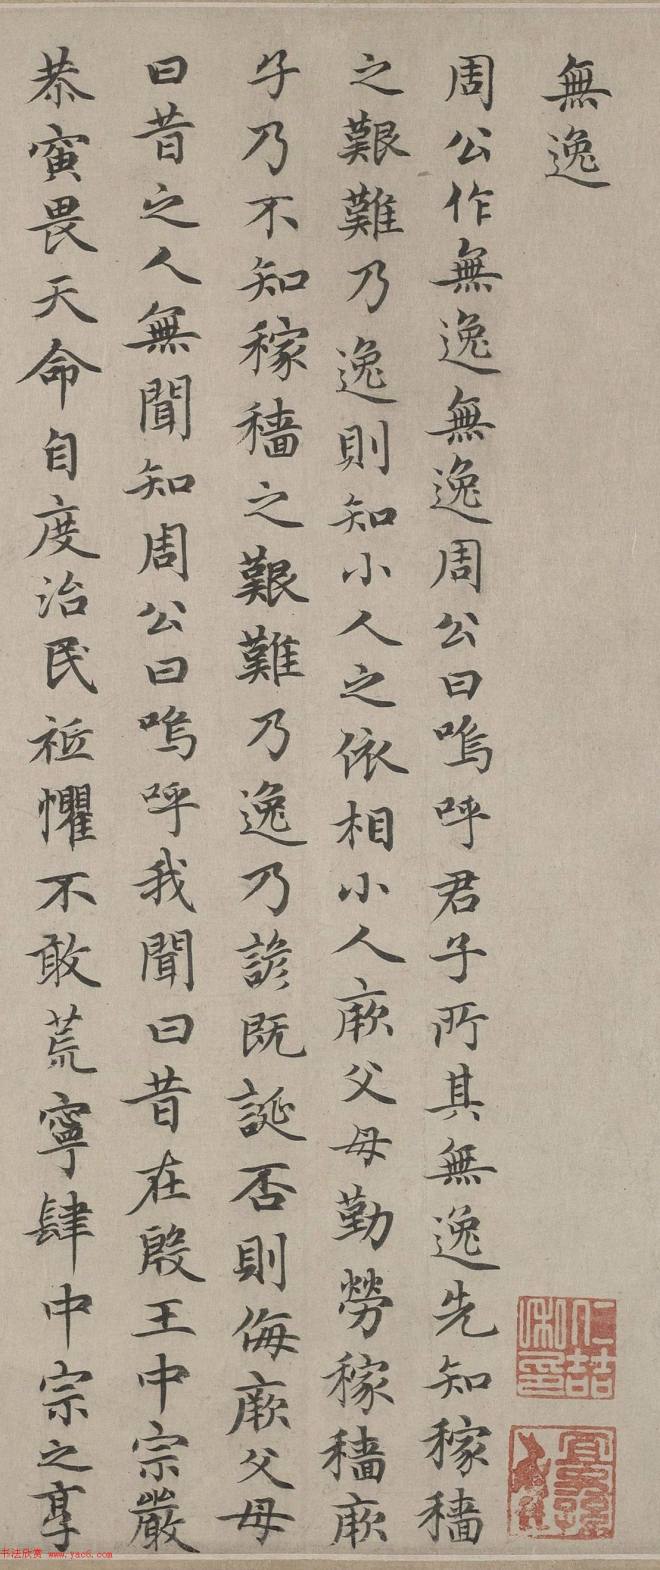 無逸
周公作無逸無逸周公曰嗚呼君子所其無逸先知稼穡
之艱難乃逸則知小人之依相小人厥父母勤勞稼穡厥
子乃不知稼穡之艱難乃逸乃諺既誕否則侮厥父母
曰昔之人無聞知周公曰嗚呼我聞曰昔在殷王中宗嚴
恭寅畏天命自度治民祗懼不敢荒寧肆中宗之享
书法欣赏 www.yac6.com